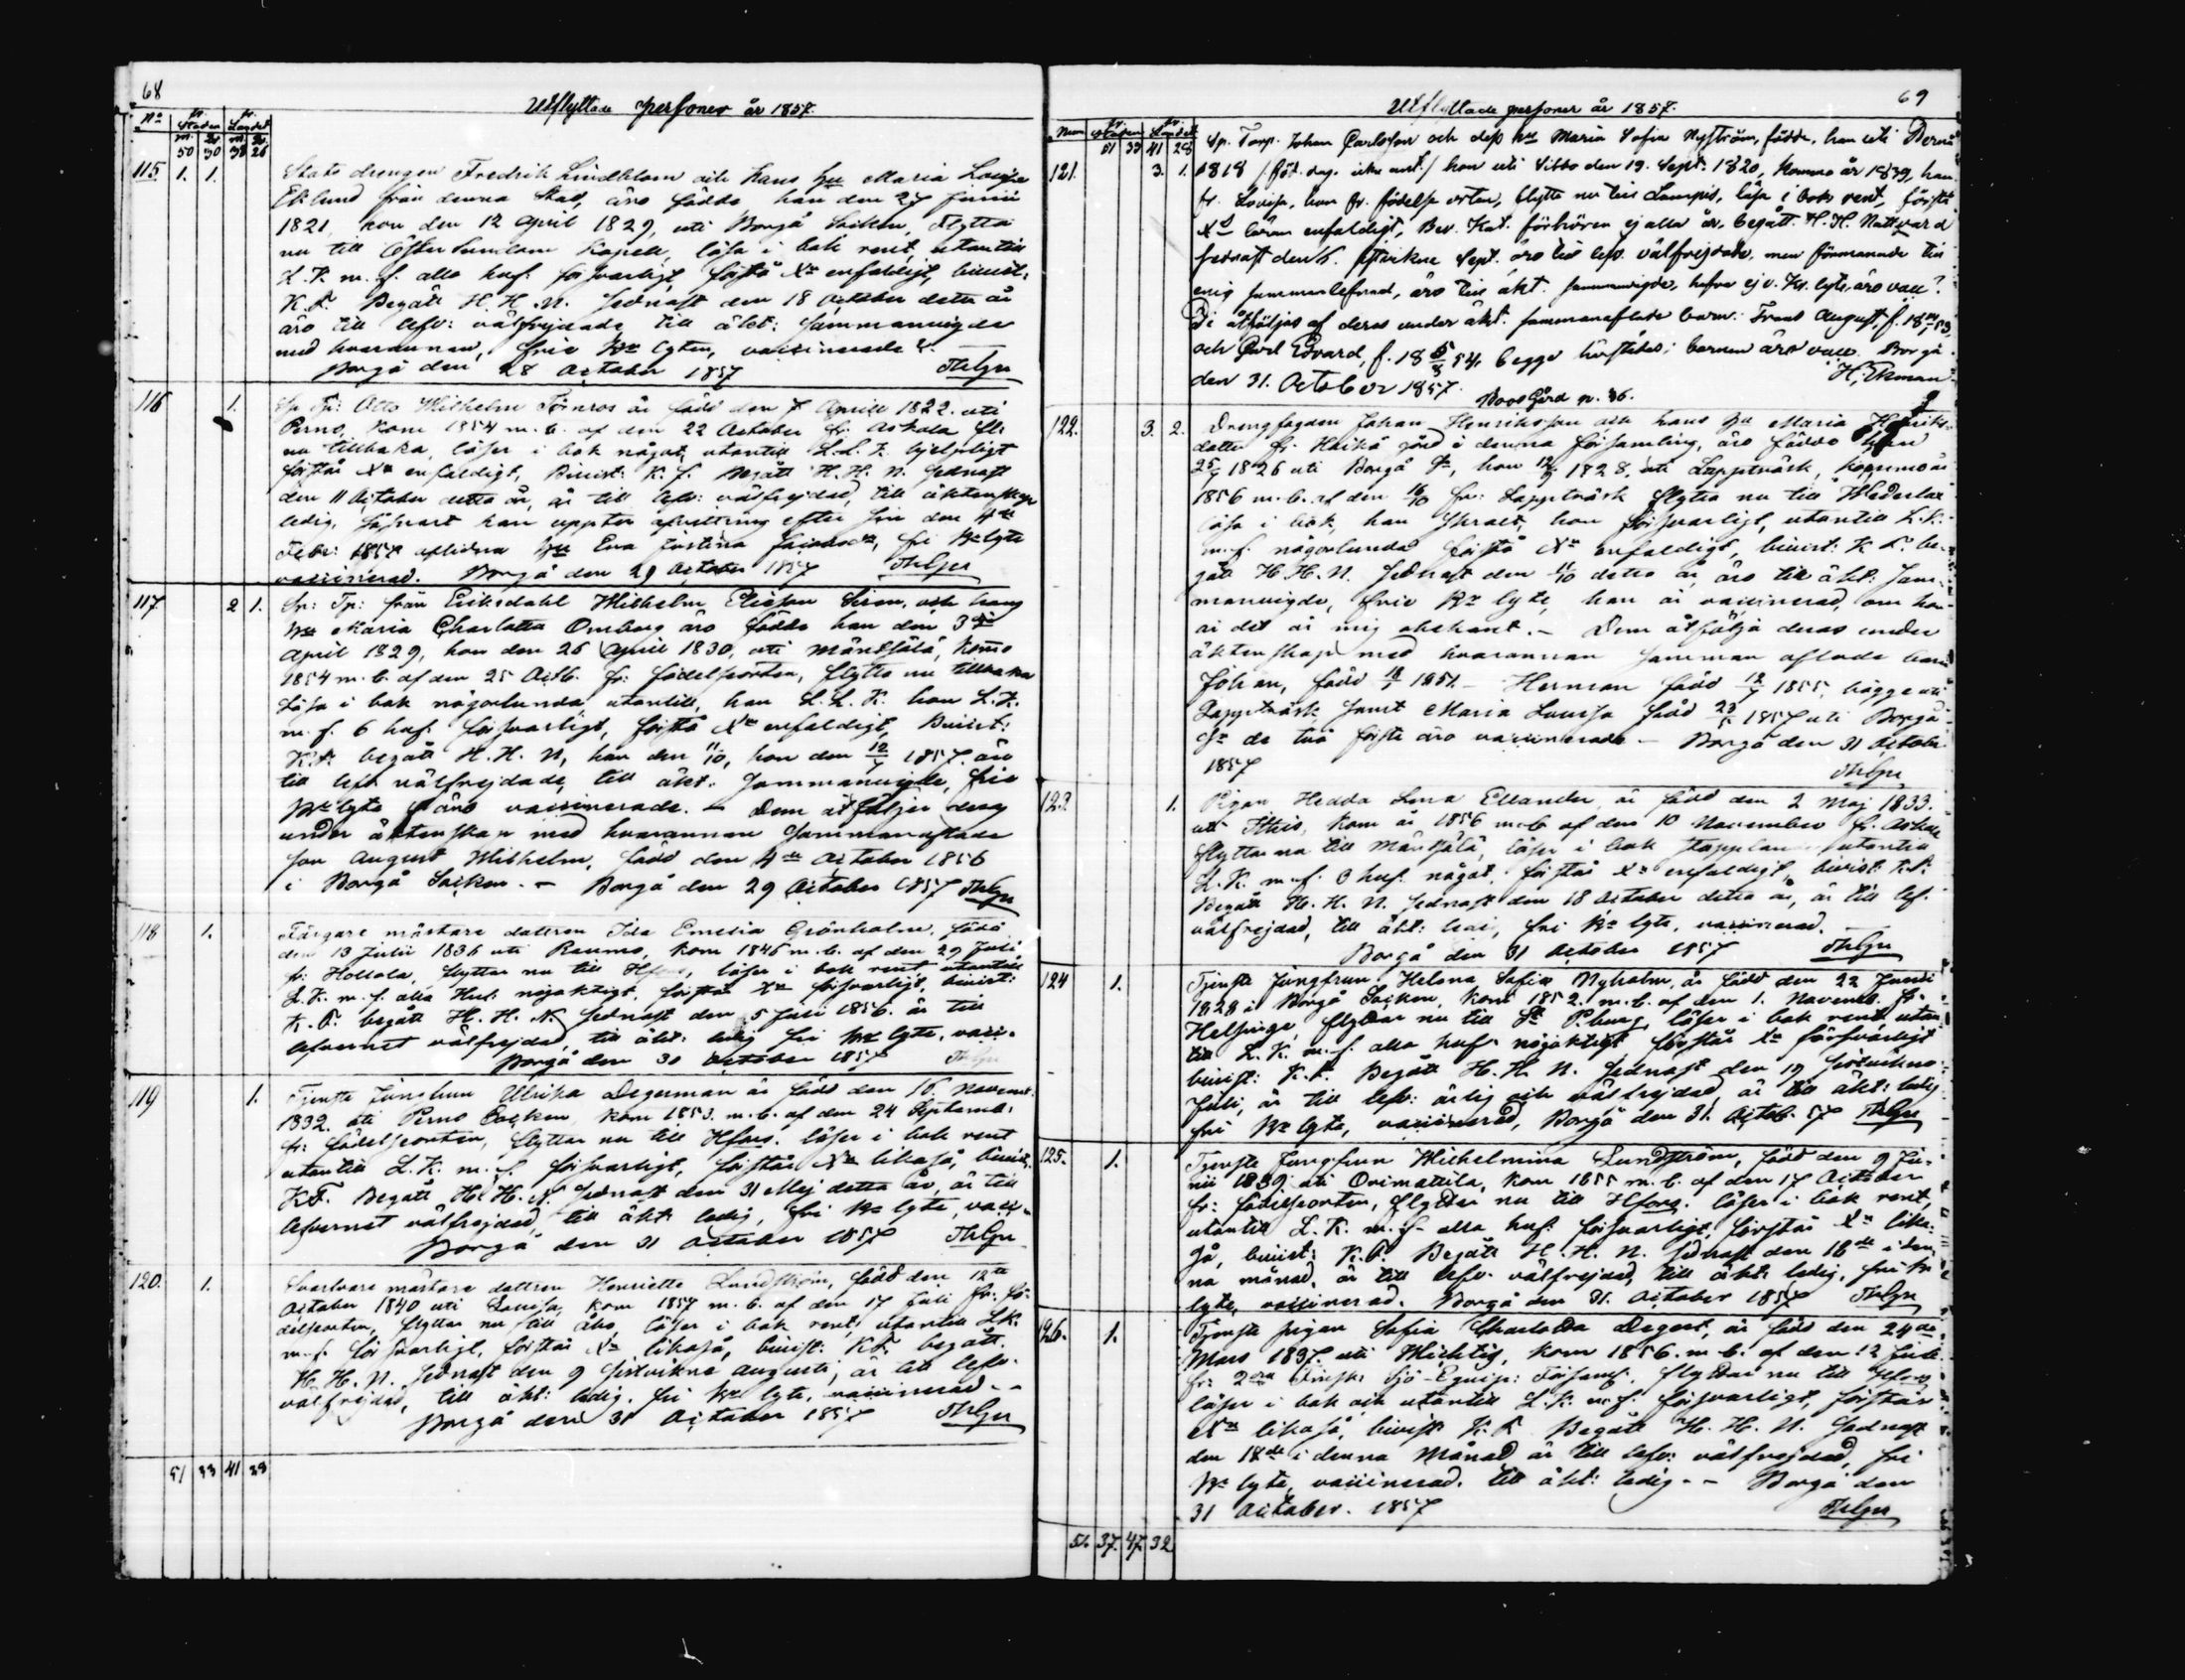 68
Utflyttade personer år 1857.
No fr. Staden fr. Landet
m. qv. m. qv.
50 30 38 26
115 1. 1. Stats drengen Fredrik Lindblom och hans hu Maria Lovisa
Eklund från denna Stad, äro födde, han den 27 Junii
1821, hon den 12 April 1829, uti Borgå Socken, flytta
nu till Kapell, läsa i bok rent, utantill
L. K. m. f. alla huf. försvarligt, förstå Xn enfaldigt, bivist.
K. F. Begått H. H. N. sednast den 18 October detta år
äro till lefv: välfrejdade, till äkt: sammanvigde
med hvarannan, frie Kr lyten, vaccinerade
Borgå den 28 October 1857
116 1. Sp Tp: Otto Wilhelm Törnros är född den 7 April 1822. uti
Perno, kom 1854 m. b. af den 22 October fr: Askola fl:
nu tillbaka, läser i bok något, utantill L. L. K. hjelpligt
förstår Xn enfaldigt, Bivist: K. F. Begått H. H. N. sednast
den 11 October detta år, är till lefv: välfrejdad, till äktenskap
ledig, såsnart han uppter afvittring efter sin den 4de
Febr: 1857 aflidna Hu Eva Justina, fri Kr lyte
vaccinerad. Borgå den 29 October 1857
117 2 1. Sp: Tp: från Eriksdahl Wilhelm Eliasson Siren, och hans
Hu Maria Charlotta Omborg äro födde han den 3
April 1829, hon den 26 April 1830, uti Mäntsälä, komo
1854 m. b. af den 25 Octb. fr: födelseorten, flytta nu tillbaka
Läsa i bok någorlunda, utantill, han L. L. K. hon L. K.
m. f. 6 huf. försvarligt, förstå Xn enfaldigt, Bivist:
K. F. begått H. H. N, han den 11/10, hon den 1857. äro
till lefv välfrejdade, till äkt: sammanvigde, frie
Kr lyte äro vaccinerade. - Dem åtföljer deras
under äktenskap med hvarannan sammanaflade
son August Wilhelm, född den 4de October 1856
i Borgå Socken. - Borgå den 29 October 1857
118 1. Färgare mästare dottren Ida Emelia Grönholm, född
den 13 Julii 1836 uti Raumo, kom 1846 m. b. af den 29 Juli
fr: Hollola, flyttar nu till Hfors, läser i bok rent utantill
L. K. m. f. alla Huf. nöjaktigt, förstår Xn försvarligt, bivist:
K. F. begått H. H. N. sednast den 5 Juli 1856. är till
lefvernet välfrejdad, till äkt: ledig fri Kr lyte, vacci.
Borgå den 30 October 1857
119 1. Tjenste Jungfrun Ulrika Degerman är född den 15. Novemb.
1832. uti Perno Socken kom 1853. m. b. af den 24 Septemb.
fr: födelseorten, flyttar nu till Hfors. läser i bok rent
utantill L. K. m. f. försvarligt, förstår Xn likaså, bivist.
K. F. Begått H. H. N sednast den 31 Maj detta år, är till
lefvernet välfrejdad, till äkt: ledig, fri Kr lyte, vacc.
Borgå den 31 October 1857
120. 1. Svarfvare mästare dottren Henriette Lundström, född den 12te
October 1840 uti Lovisa, kom 1857 m. b. af den 17 Juli fr. fö-
delseorten, flyttar nu till Åbo läser i bok rent, utantill L.K.
m. f. försvarligt, förstår Xn likaså, bivist: K.F. begått.
H. H. N. sednast den 9 sistvikne Augusti, är till lefv.
välfrejdad, till äkt: ledig. fri Kr lyte, vaccinerad. -
Borgå den 31 October 1857
51 33 41 28
69
Utflyttade personer år 1857.
Num fr. Staden fr. Landet
51 33 41 28
121. 3. 1. Sp. Torp. Johan Carlsson och dess hu Maria Sofia Nyström, födde, han uti Perno
1818 / föd. dag. icke / hon uti Sibbo den 19. Sept. 1820, komno år 1839, han
fr. Lovisa, hon fr. födelse orten, flytta nu till Lampis, läsa i bok rent, förstå
Xd läran enfaldigt, Bev. Kat. förhören ej alla år. begått H. H. Nattvard
sednast den 6. sistvikne Sept. äro till lefv. välfrejdade, men förmanade till
enig sammanlefnad, äro till äkt. sammanvigde, hafva ej v. Kr. lyte, äro vacc.
De åtföljas af deras under äkt. sammanaflade barn: Frans August, f. 18 53,
och Carl Edvard, f. 18 54, begge härstädes; barnen äro vacc. Borgå
den 31. October 1857. H. Ekman
122. 3. 2. Boosgård n. 36.
Drengfogden Johan Henriksson och hans Hu Maria Henriks-
dotter fr. Haikå gård i denna församling, äro födde han
25 1826 uti Borgå Sn, hon 1828, uti Lappträsk, kommo år
1856 m. b. af den 16/10 fr: Lappträsk flytta nu till Wederlax
läsa i bok, han svagt, hon försvarligt, utantill L. K.
m. f. någorlunda förstå Xn enfaldigt, bivist: K F. be-
gått H. H. N. sednast den 11/10 detta år, äro till äkt: sam-
manvigde, frie Kr lyte, han är vaccinerad, om hon
är det är mig obekant. - Dem åtfölja deras under
äktenskap med hvarannan samman aflade barn
Johan, född 1851. - Herman född 1855, bägge uti
Lappträsk, samt Maria Lovisa född 1857 uti Borgå
Sn de två förste äro vaccinerade. - Borgå den 31 October
1857
123 1. Pigan Hedda Lena Ellander, är född den 2 Maj 1833.
uti Itis, kom år 1856 m.b af den 10 November fr. Askola
flyttar nu till Mäntsälä, läser i bok stapplande, utantill
L. K. m. f. 3 huf. något, förstår Xn enfaldigt, bivist: K. F.
Begått H. H. N. sednast den 18 October detta år, är till lef.
välfrejdad, till äkt: ledig, fri Kr lyte, vaccinerad.
Borgå den 31 October 1857
124 1. Tjenste Jungfrun Helena Sofia Nyholm, är född den 22 Junii
1828 i Borgå Socken, kom 1852. m. b. af den 1. Novemb. fr.
Helsinge, flyttar nu till St P.burg, läser i bok rent utan
till L. K. m. f. alla huf. nöjaktigt förstår Xn försvarligt
bivist: K. F. Begått H. H. N. sednast den 19 sistvikne
Juli, är till lefv: ärlig och välfrejdad, är till äkt: ledig
fri Kr lyte, vaccinerad, Borgå den 31. Octob. 57
125. 1. Tjenste Jungfrun Wilhelmina Lundström, född den 9 Ju-
nii 1839 uti Orimattila, kom 1855 m. b. af den 17 October
fr: födelseorten, flyttar nu till Hfors. läser i bok rent,
utantill L. K. m. f. alla huf. försvarligt, förstår Xn lika-
så, bivist: K. F. Begått H. H. N. sednast den 18de i den-
na månad, är till lefv. välfrejdad, till äkt: ledig, fri Kr
lyte, vaccinerad. Borgå den 31. October 1857
126. 1. Tjenste pigan Sofia Charlotta Degert, är född den 24de
Mars 1837. uti Wichtis, kom 1856. m. b. af den 12 Juli
fr: 2dra Finska Sjö-Equip: Församl. flyttar nu till Hfors
läser i bok och utantill L. K. m. f. försvarligt, förstår
Xn likaså, bivist. K. F. Begått H. H. N. sednast
den 18de i denna Månad är till lefv: välfrejdad, fri
Kr lyte, vaccinerad. till äkt: ledig. - Borgå den
31 October. 1857
51. 37. 47. 32